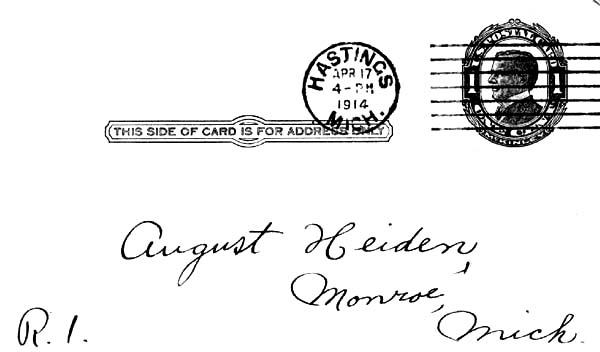 HASTINGS
APR 17
4-PM
1914
MICH.
THIS SIDE OF CARD IS FOR ADDRESS ONLY
1 1
August Heiden,
Monroe,
R. 1.
Mich.